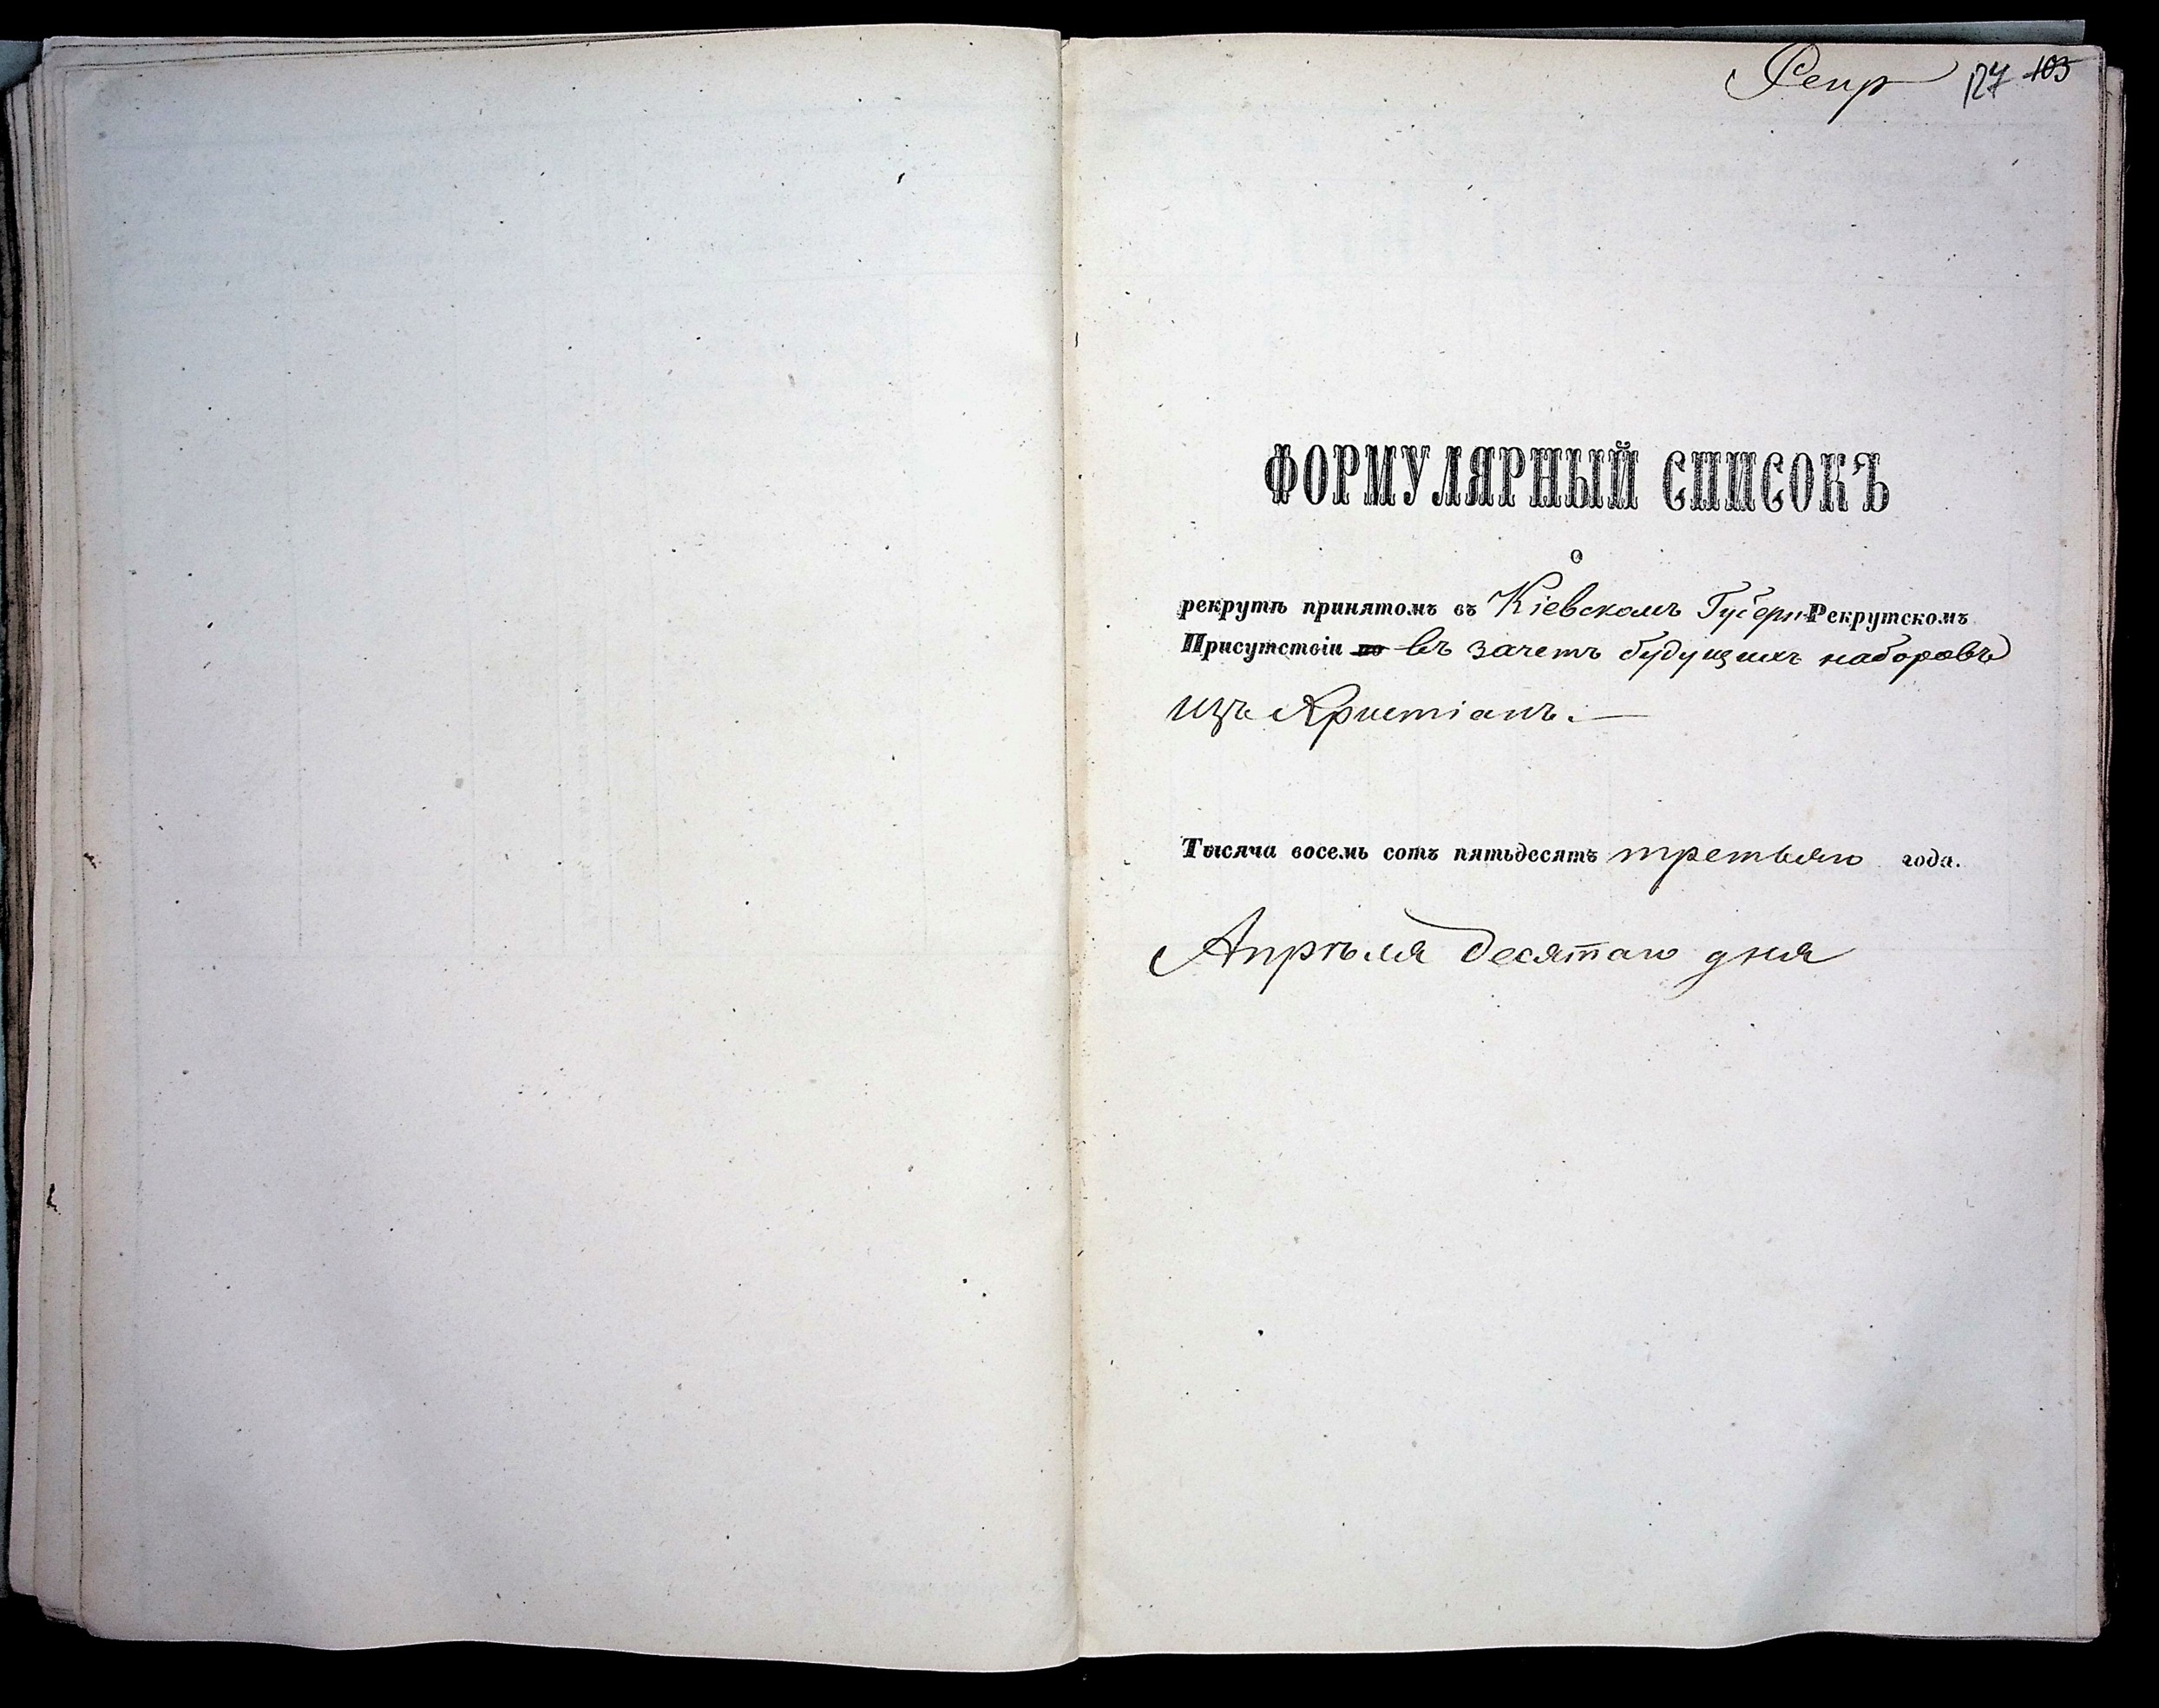 Рекр 127 105
ФОРМУЛЯРНЫЙ СПИСОКЪ
о
рекрутѣ принятомъ въ Кіевскомъ Губерн Рекрутскомъ
Присутствіи по въ зачетъ будущихъ наборовъ
изъ Христіанъ.—
Тысяча восемь сотъ пятьдесятъ третьяго года.
Апрѣля десятаго дня